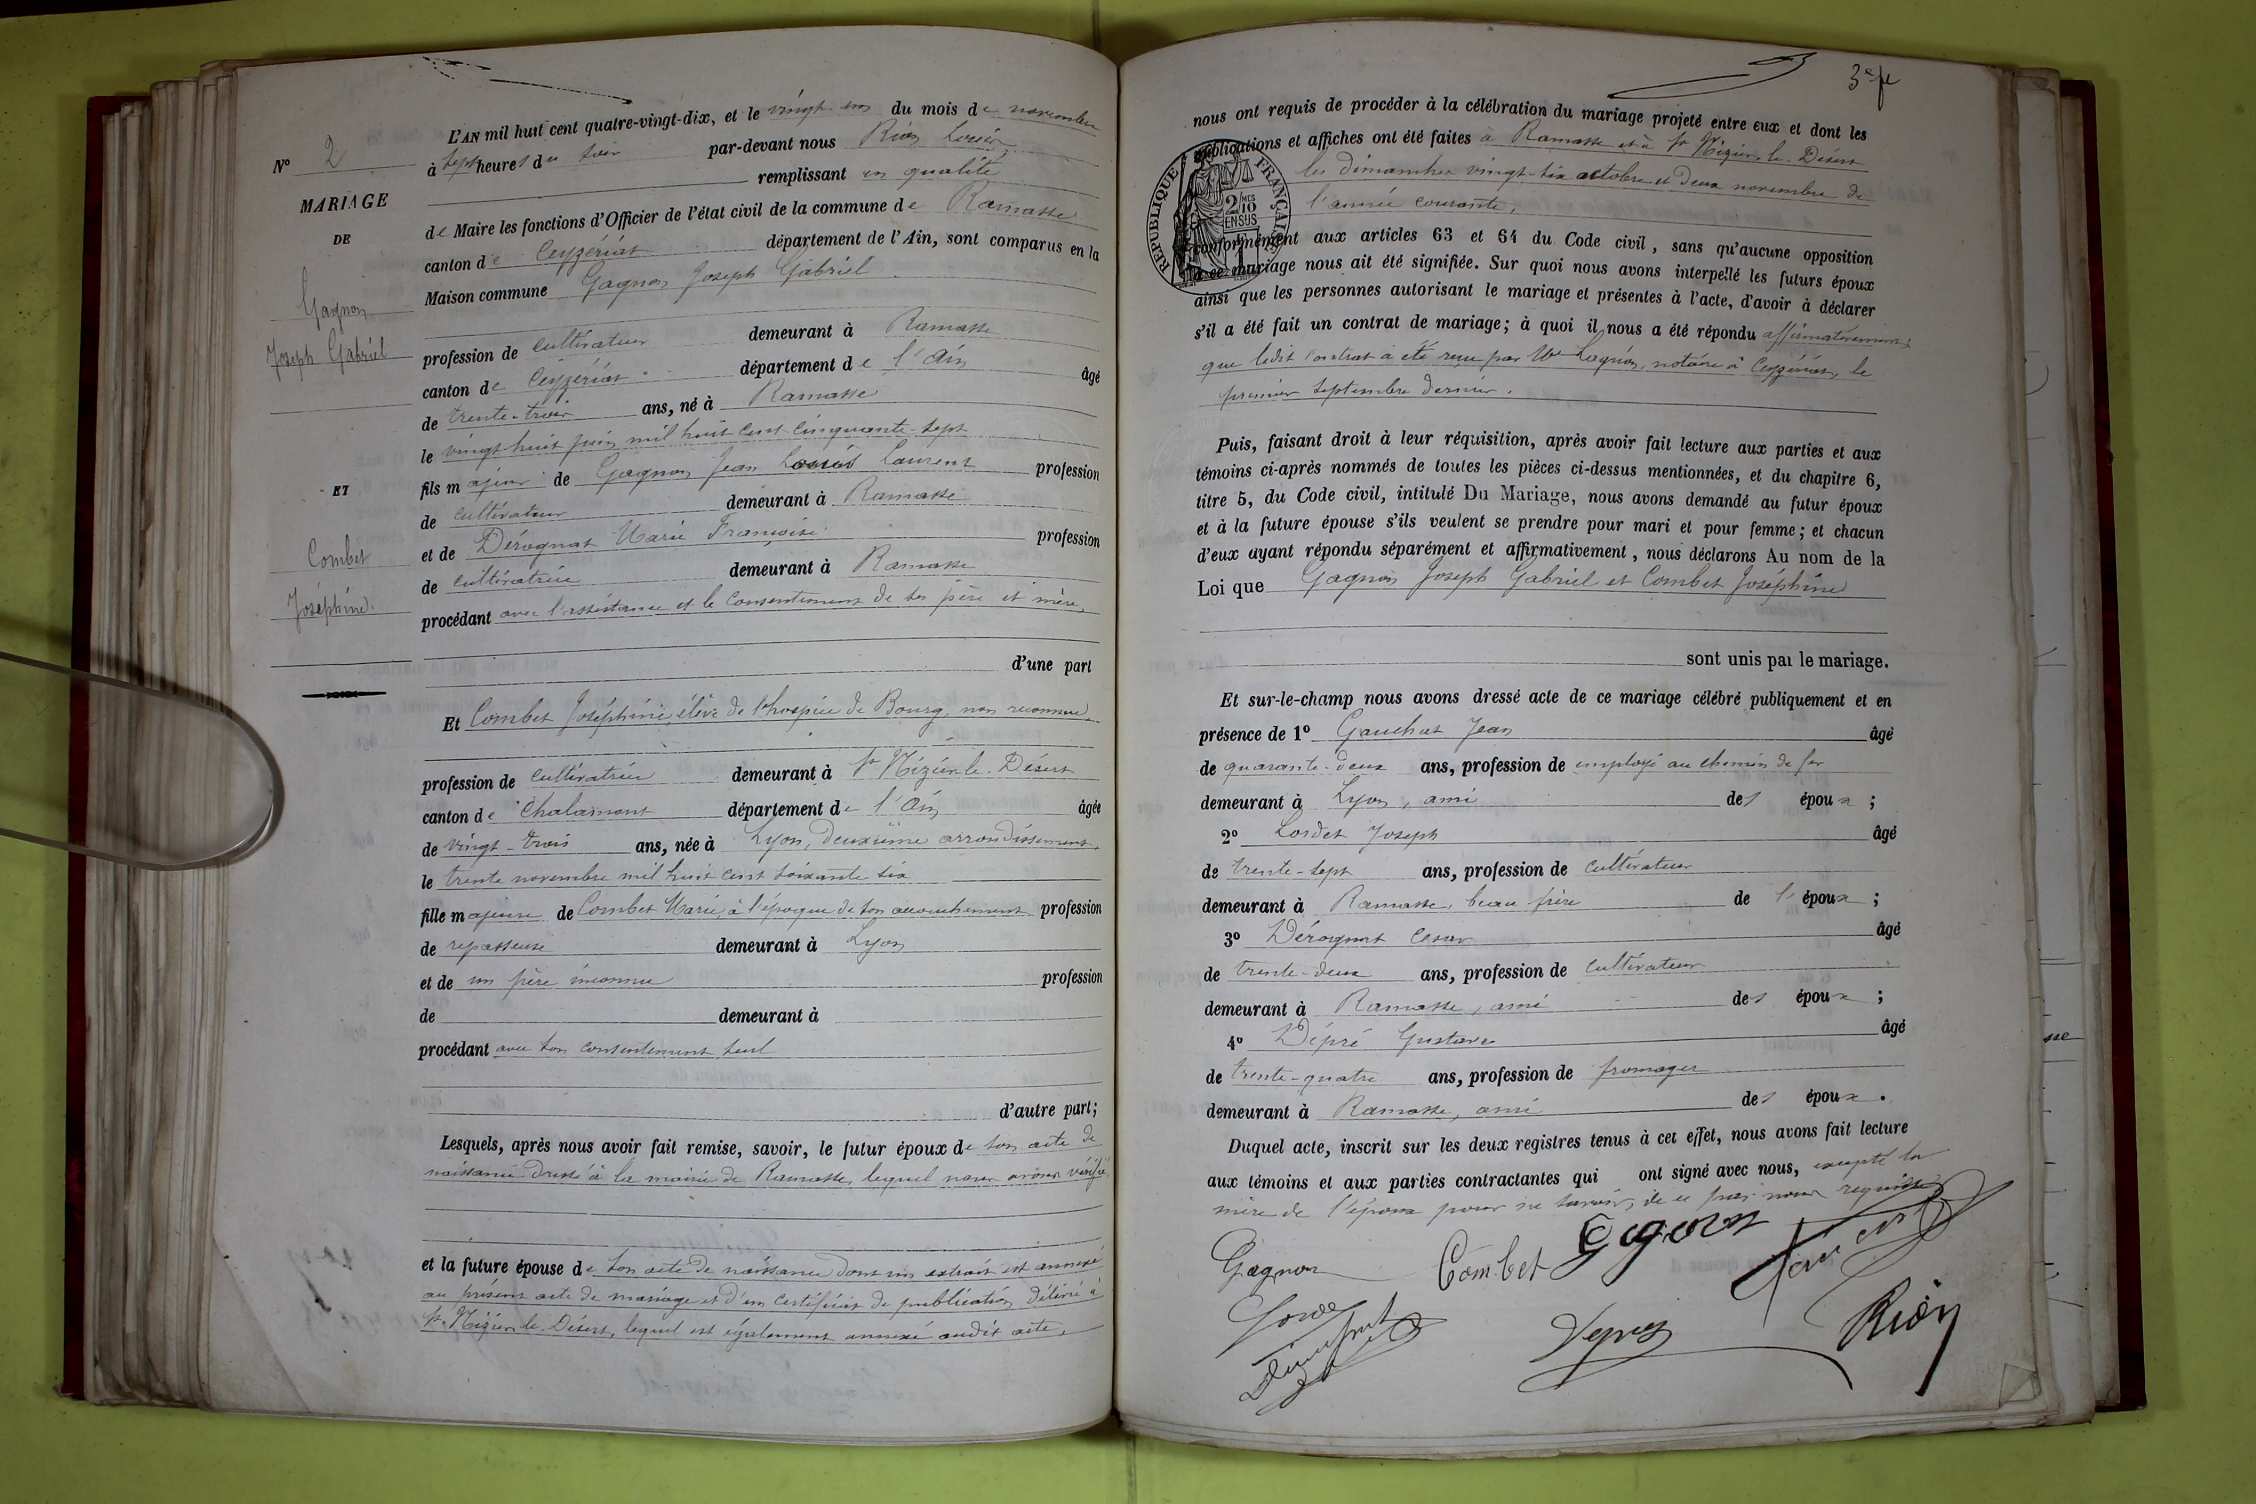 N° 2
MARIAGE
DE
Gagnon
Joseph Gabriel
ET
Combet
Joséphine.
L'AN mil huit cent quatre-vingt-dix, et le vingt un du mois de novembre
à sept heures du soir par-devant nous Rion Louis,
remplissant en qualité
de Maire les fonctions d'Officier de l'état civil de la commune de Ramasse
canton de Ceyzériat département de l'Ain, sont comparus en la
Maison commune Gagnon Joseph Gabriel
profession de cultivateur demeurant à Ramasse
canton de Ceyzériat département de l'Ain âgé
de trente-trois ans, né à Ramasse
le vingt-huit juin mil huit cent cinquante-sept
fils majeur de Gagnon Jean Laurent profession
de cultivateur demeurant à Ramasse
et de Dérognat Marie Françoise profession
de cultivatrice demeurant à Ramasse
procédant avec l'assistance et le consentement de ses père et mère,
d'une part
Et Combet Joséphine élève de l'hospice de Bourg, non reconnue
profession de cultivatrice demeurant à St Nizier-le-Désert
canton de Chalamont département de l'Ain âgée
de vingt-trois ans, née à Lyon, deuxième arrondissement,
le trente novembre mil huit cent soixante six
fille majeure de Combet Marie, à l'époque de son accouchement profession
de repasseuse demeurant à Lyon
et de un père inconnu profession
de demeurant à
procédant avec son consentement seul
d'autre part;
Lesquels, après nous avoir fait remise, savoir, le futur époux de son acte de
naissance dressé à la mairie de Ramasse, lequel nous avons vérifié
et la future épouse de son acte de naissance dont un extrait est annexé
au présent acte de mariage et d'un certificat de publication délivré à
St Nizier-le-Désert, lequel est également annexé audit acte,
3e
nous ont requis de procéder à la célébration du mariage projeté entre eux et dont les
publications et affiches ont été faites à Ramasse et à St Nizier-le-Désert
les dimanches vingt-six octobre et deux novembre de
l'année courante,
RÉPUBLIQUE FRANÇAISE
2/10
EN SUS
conformément aux articles 63 et 64 du Code civil, sans qu'aucune opposition
à ce mariage nous ait été signifiée. Sur quoi nous avons interpellé les futurs époux
ainsi que les personnes autorisant le mariage et présentes à l'acte, d'avoir à déclarer
s'il a été fait un contrat de mariage; à quoi il nous a été répondu affirmativement;
que ledit contrat a été reçu par Me notaire à Ceyzériat, le
premier septembre dernier.
Puis, faisant droit à leur réquisition, après avoir fait lecture aux parties et aux
témoins ci-après nommés de toutes les pièces ci-dessus mentionnées, et du chapitre 6,
titre 5, du Code civil, intitulé Du Mariage, nous avons demandé au futur époux
et à la future épouse s'ils veulent se prendre pour mari et pour femme; et chacun
d'eux ayant répondu séparément et affirmativement, nous déclarons Au nom de la
Loi que Gagnon Joseph Gabriel et Combet Joséphine
sont unis par le mariage.
Et sur-le-champ nous avons dressé acte de ce mariage célébré publiquement et en
présence de 1° Gauchat Jean âgé
de quarante-deux ans, profession de employé au chemin de fer
demeurant à Lyon, ami des époux ;
2° Lordet Joseph âgé
de trente-sept ans, profession de cultivateur
demeurant à Ramasse, beau frère de l'époux ;
3° Dérognat César âgé
de trente-deux ans, profession de cultivateur
demeurant à Ramasse, ami des époux ;
4° Dépré Gustave âgé
de trente-quatre ans, profession de fromager
demeurant à Ramasse, ami des époux.
Duquel acte, inscrit sur les deux registres tenus à cet effet, nous avons fait lecture
aux témoins et aux parties contractantes qui ont signé avec nous, excepté la
mère de l'époux pour ne savoir, de ce par nous requise
Gagnon Combet Gagnon
Rion